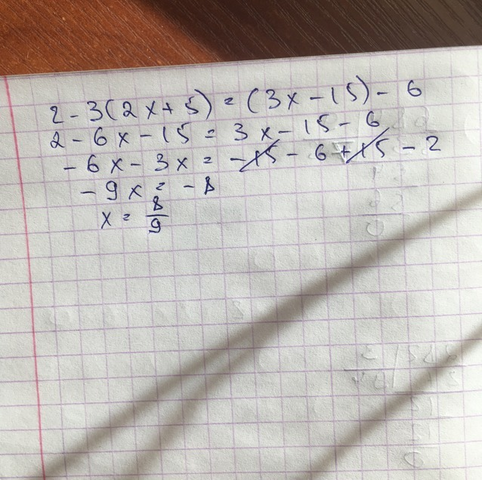 2 - 3(2x + 5) = (3x - 15) - 6
2 - 6x - 15 = 3x - 15 - 6
- 6x - 3x = - 15 - 6 + 15 - 2
- 9x = - 8
x = 8/9